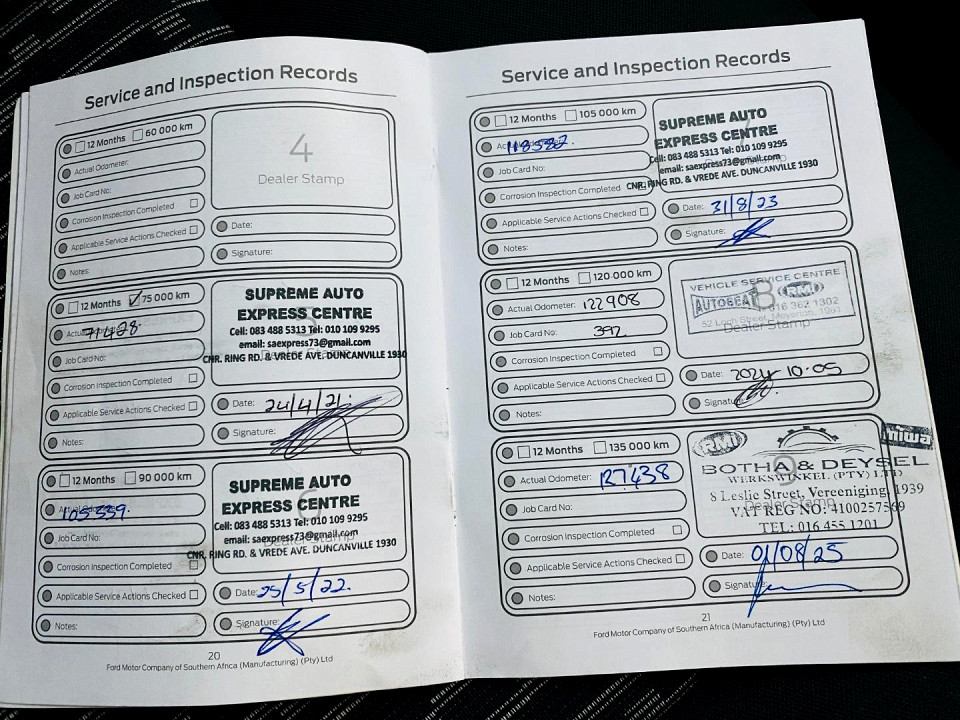 Service and Inspection Records
12 Months 60 000 km
Actual Odometer:
Job Card No:
Corrosion Inspection Completed
Applicable Service Actions Checked
Notes:
4
Dealer Stamp
Date:
Signature:
12 Months 75 000 km
71428.
Job Card No:
Corrosion Inspection Completed
Applicable Service Actions Checked
Notes:
SUPREME AUTO
EXPRESS CENTRE
Cell: 083 488 5313 Tel: 010 109 9295
email: saexpress73@gmail.com
CNR. RING RD. & VREDE AVE. DUNCANVILLE 1930
Date: 24/4/21.
Signature:
12 Months 90 000 km
105 339.
Job Card No:
Corrosion Inspection Completed
Applicable Service Actions Checked
Notes:
6
SUPREME AUTO
EXPRESS CENTRE
Cell: 083 488 5313 Tel: 010 109 9295
email: saexpress73@gmail.com
CNR. RING RD. & VREDE AVE. DUNCANVILLE 1930
Date: 25/5/22.
Signature:
20
Ford Motor Company of Southern Africa (Manufacturing) (Pty) Ltd
Service and Inspection Records
12 Months 105 000 km
Job Card No:
Corrosion Inspection Completed
Applicable Service Actions Checked
Notes:
SUPREME AUTO
EXPRESS CENTRE
Cell: 083 488 5313 Tel: 010 109 9295
email: saexpress73@gmail.com
CNR. RING RD. & VREDE AVE. DUNCANVILLE 1930
Date: 31/8/23
Signature:
12 Months 120 000 km
Actual Odometer: 122908
Job Card No: 392
Corrosion Inspection Completed
Applicable Service Actions Checked
Notes:
VEHICLE SERVICE CENTRE
8
RMI
Dealer Stamp
Date: 2024 10-05
Signature:
12 Months 135 000 km
Actual Odometer: 137438
Job Card No:
Corrosion Inspection Completed
Applicable Service Actions Checked
Notes:
RMI
miwa
9
BOTHA & DEYSEL
WERKSWINKEL (PTY) LTD
8 Leslie Street, Vereeniging, 1939
VAT REG NO: 4100257569
TEL: 016 455 1201
Date: 01/08/25
Signature:
21
Ford Motor Company of Southern Africa (Manufacturing) (Pty) Ltd